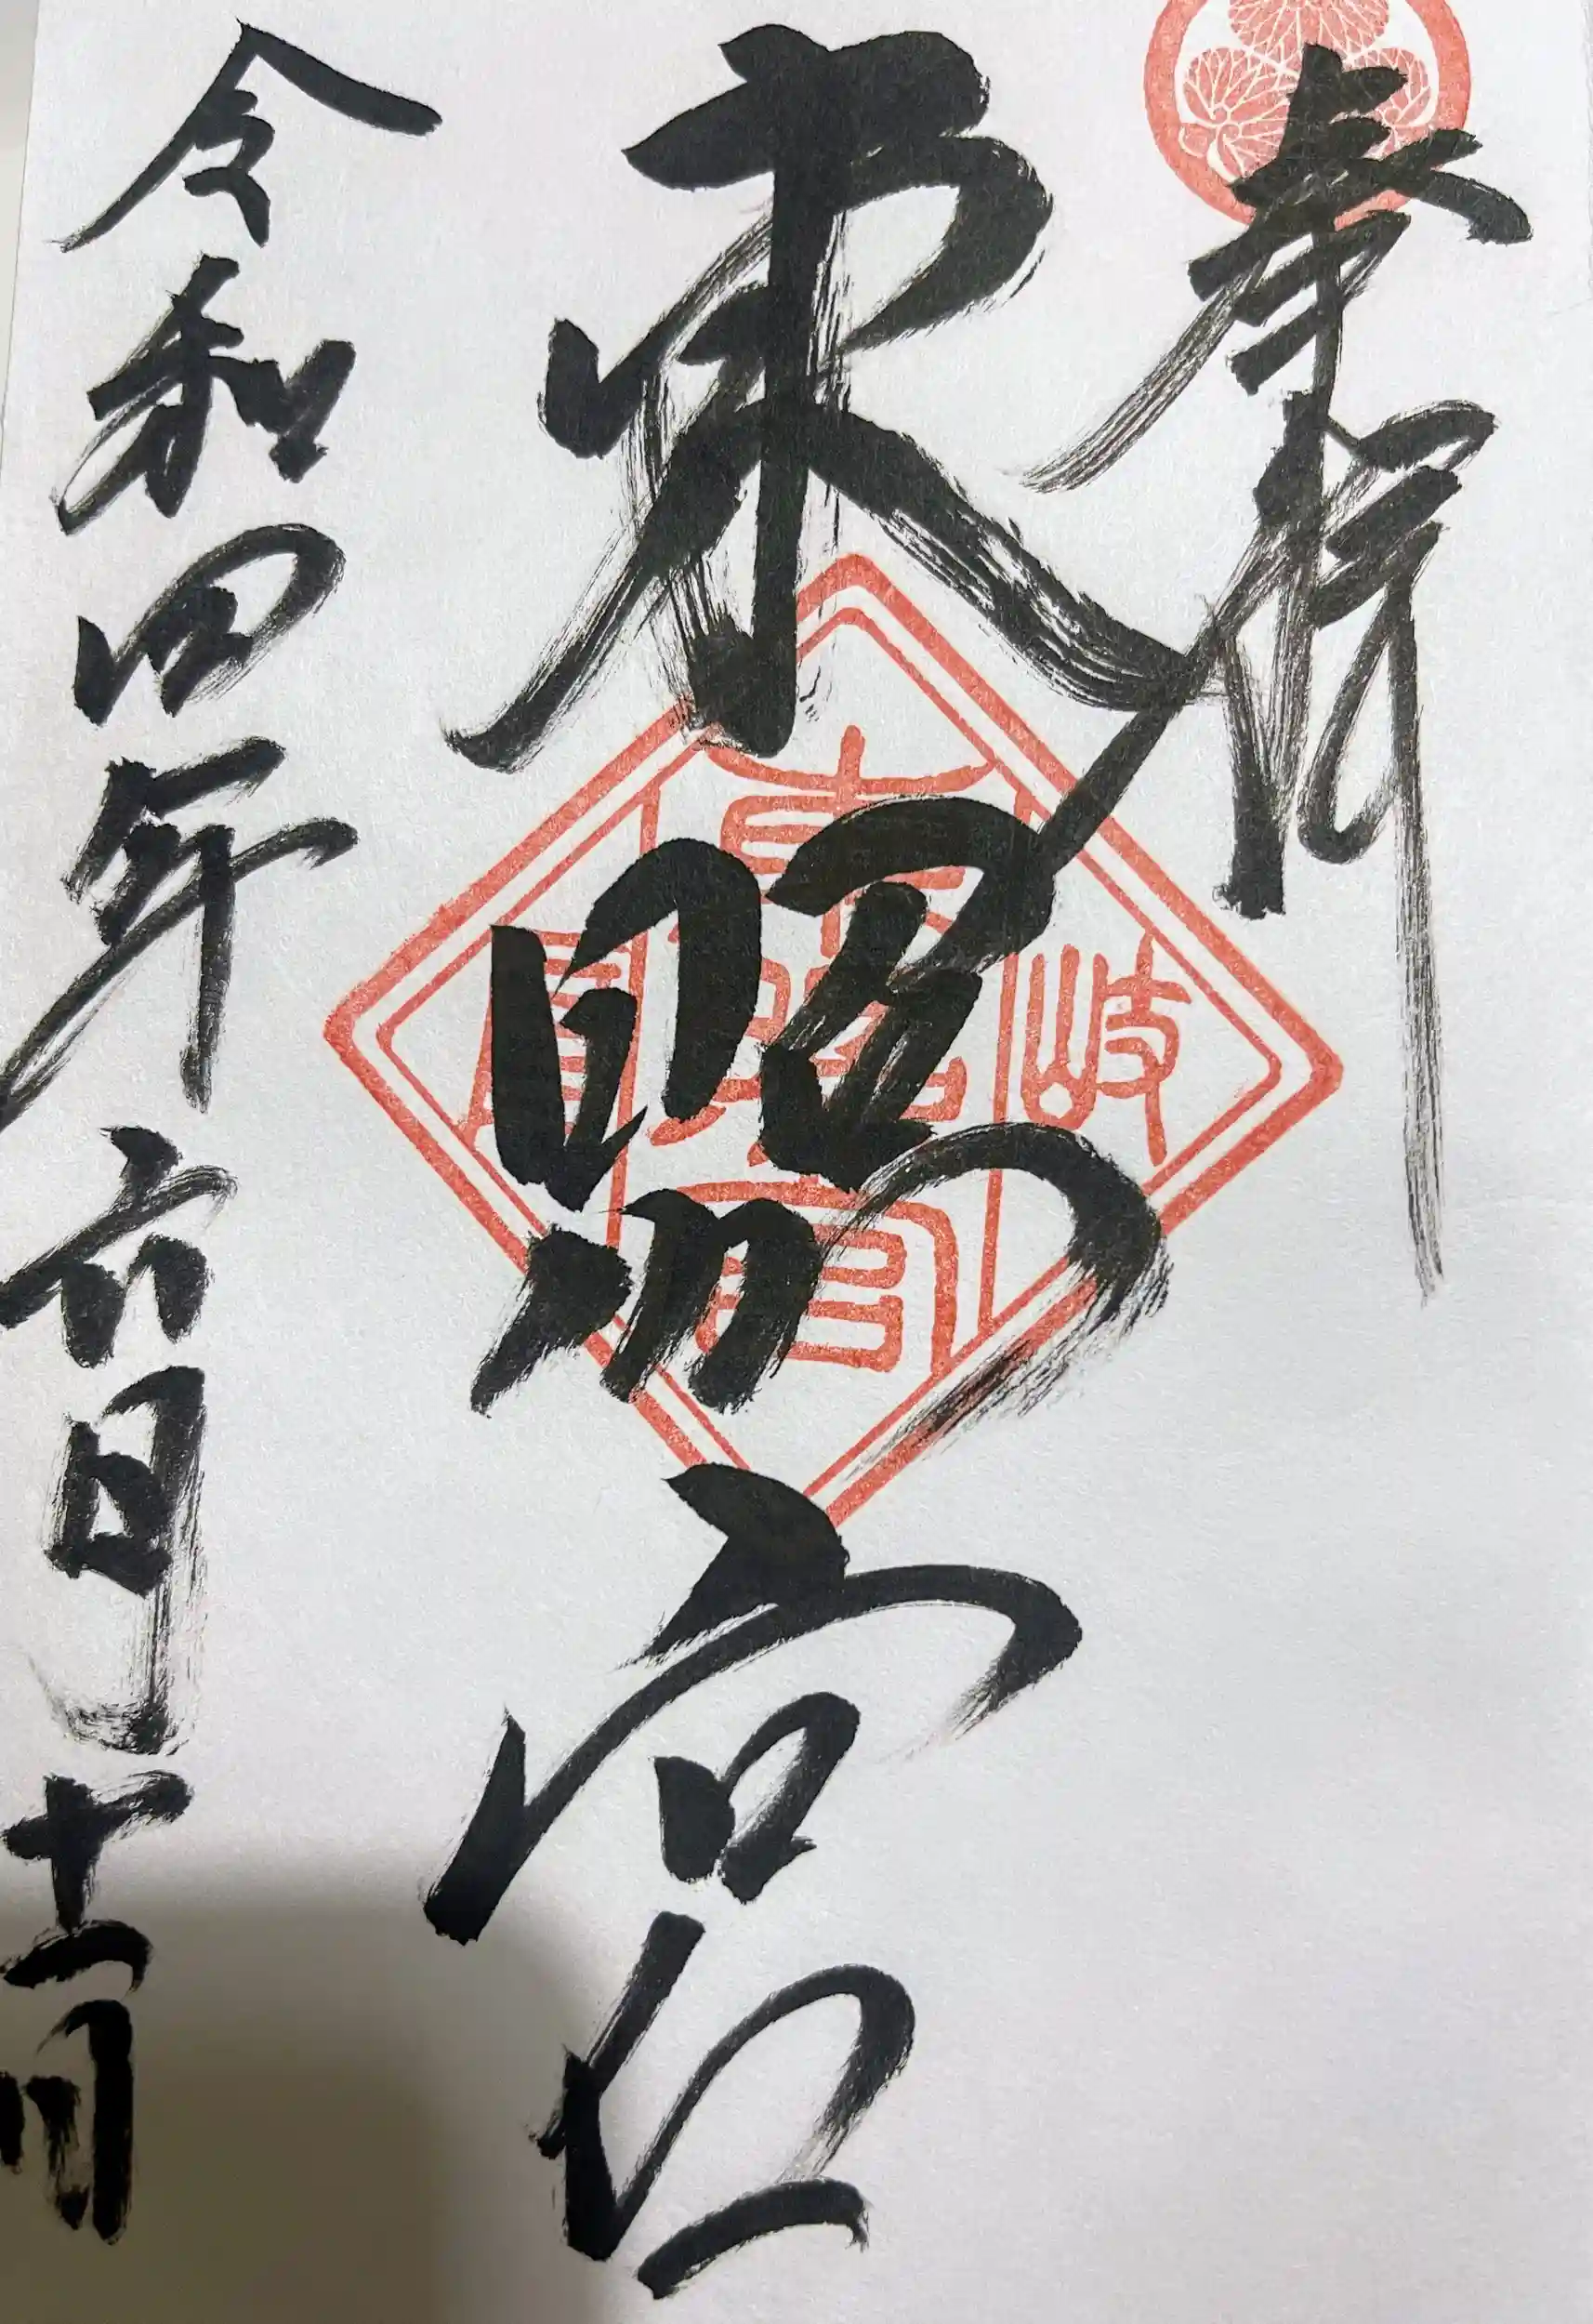 奉拝
東照宮
令和四年六月十一日
岐
東照宮
阜